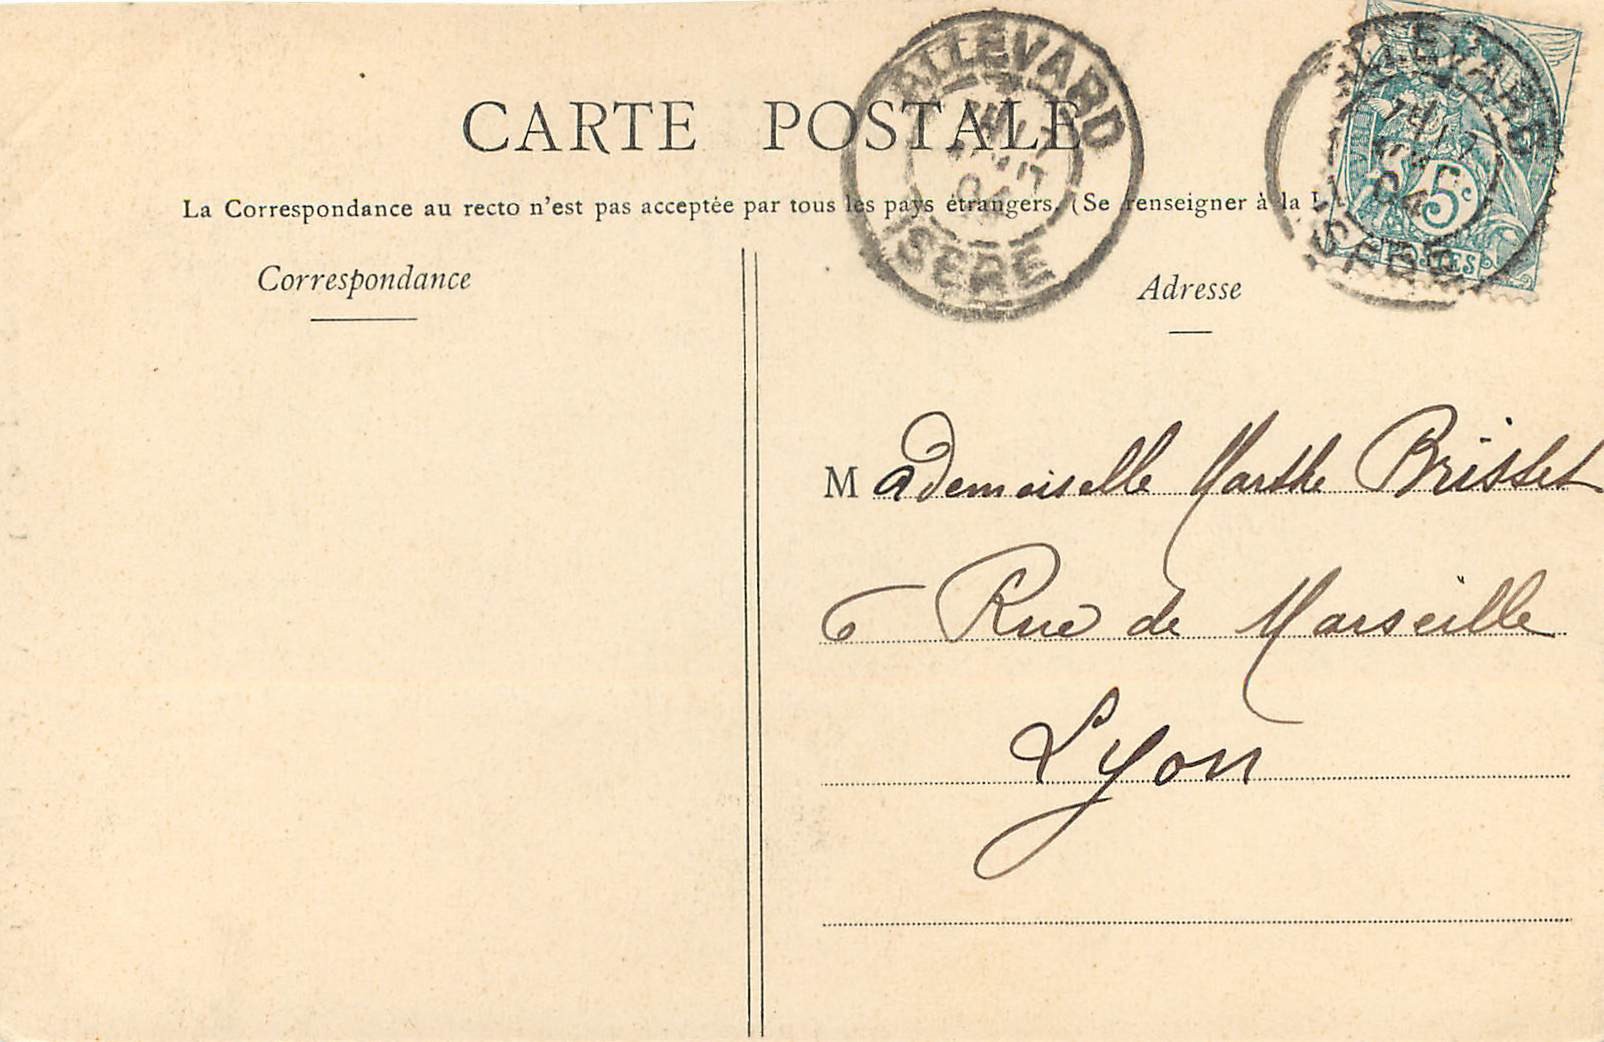 CARTE POSTALE
La Correspondance au recto n'est pas acceptée par tous les pays étrangers. (Se renseigner à la
Correspondance
Adresse
ALLEVARD
04
ISÈRE
ALLEVARD
04
ISÈRE
5c
POSTES
Mademoiselle Marthe Brisset
6 Rue de Marseille
Lyon